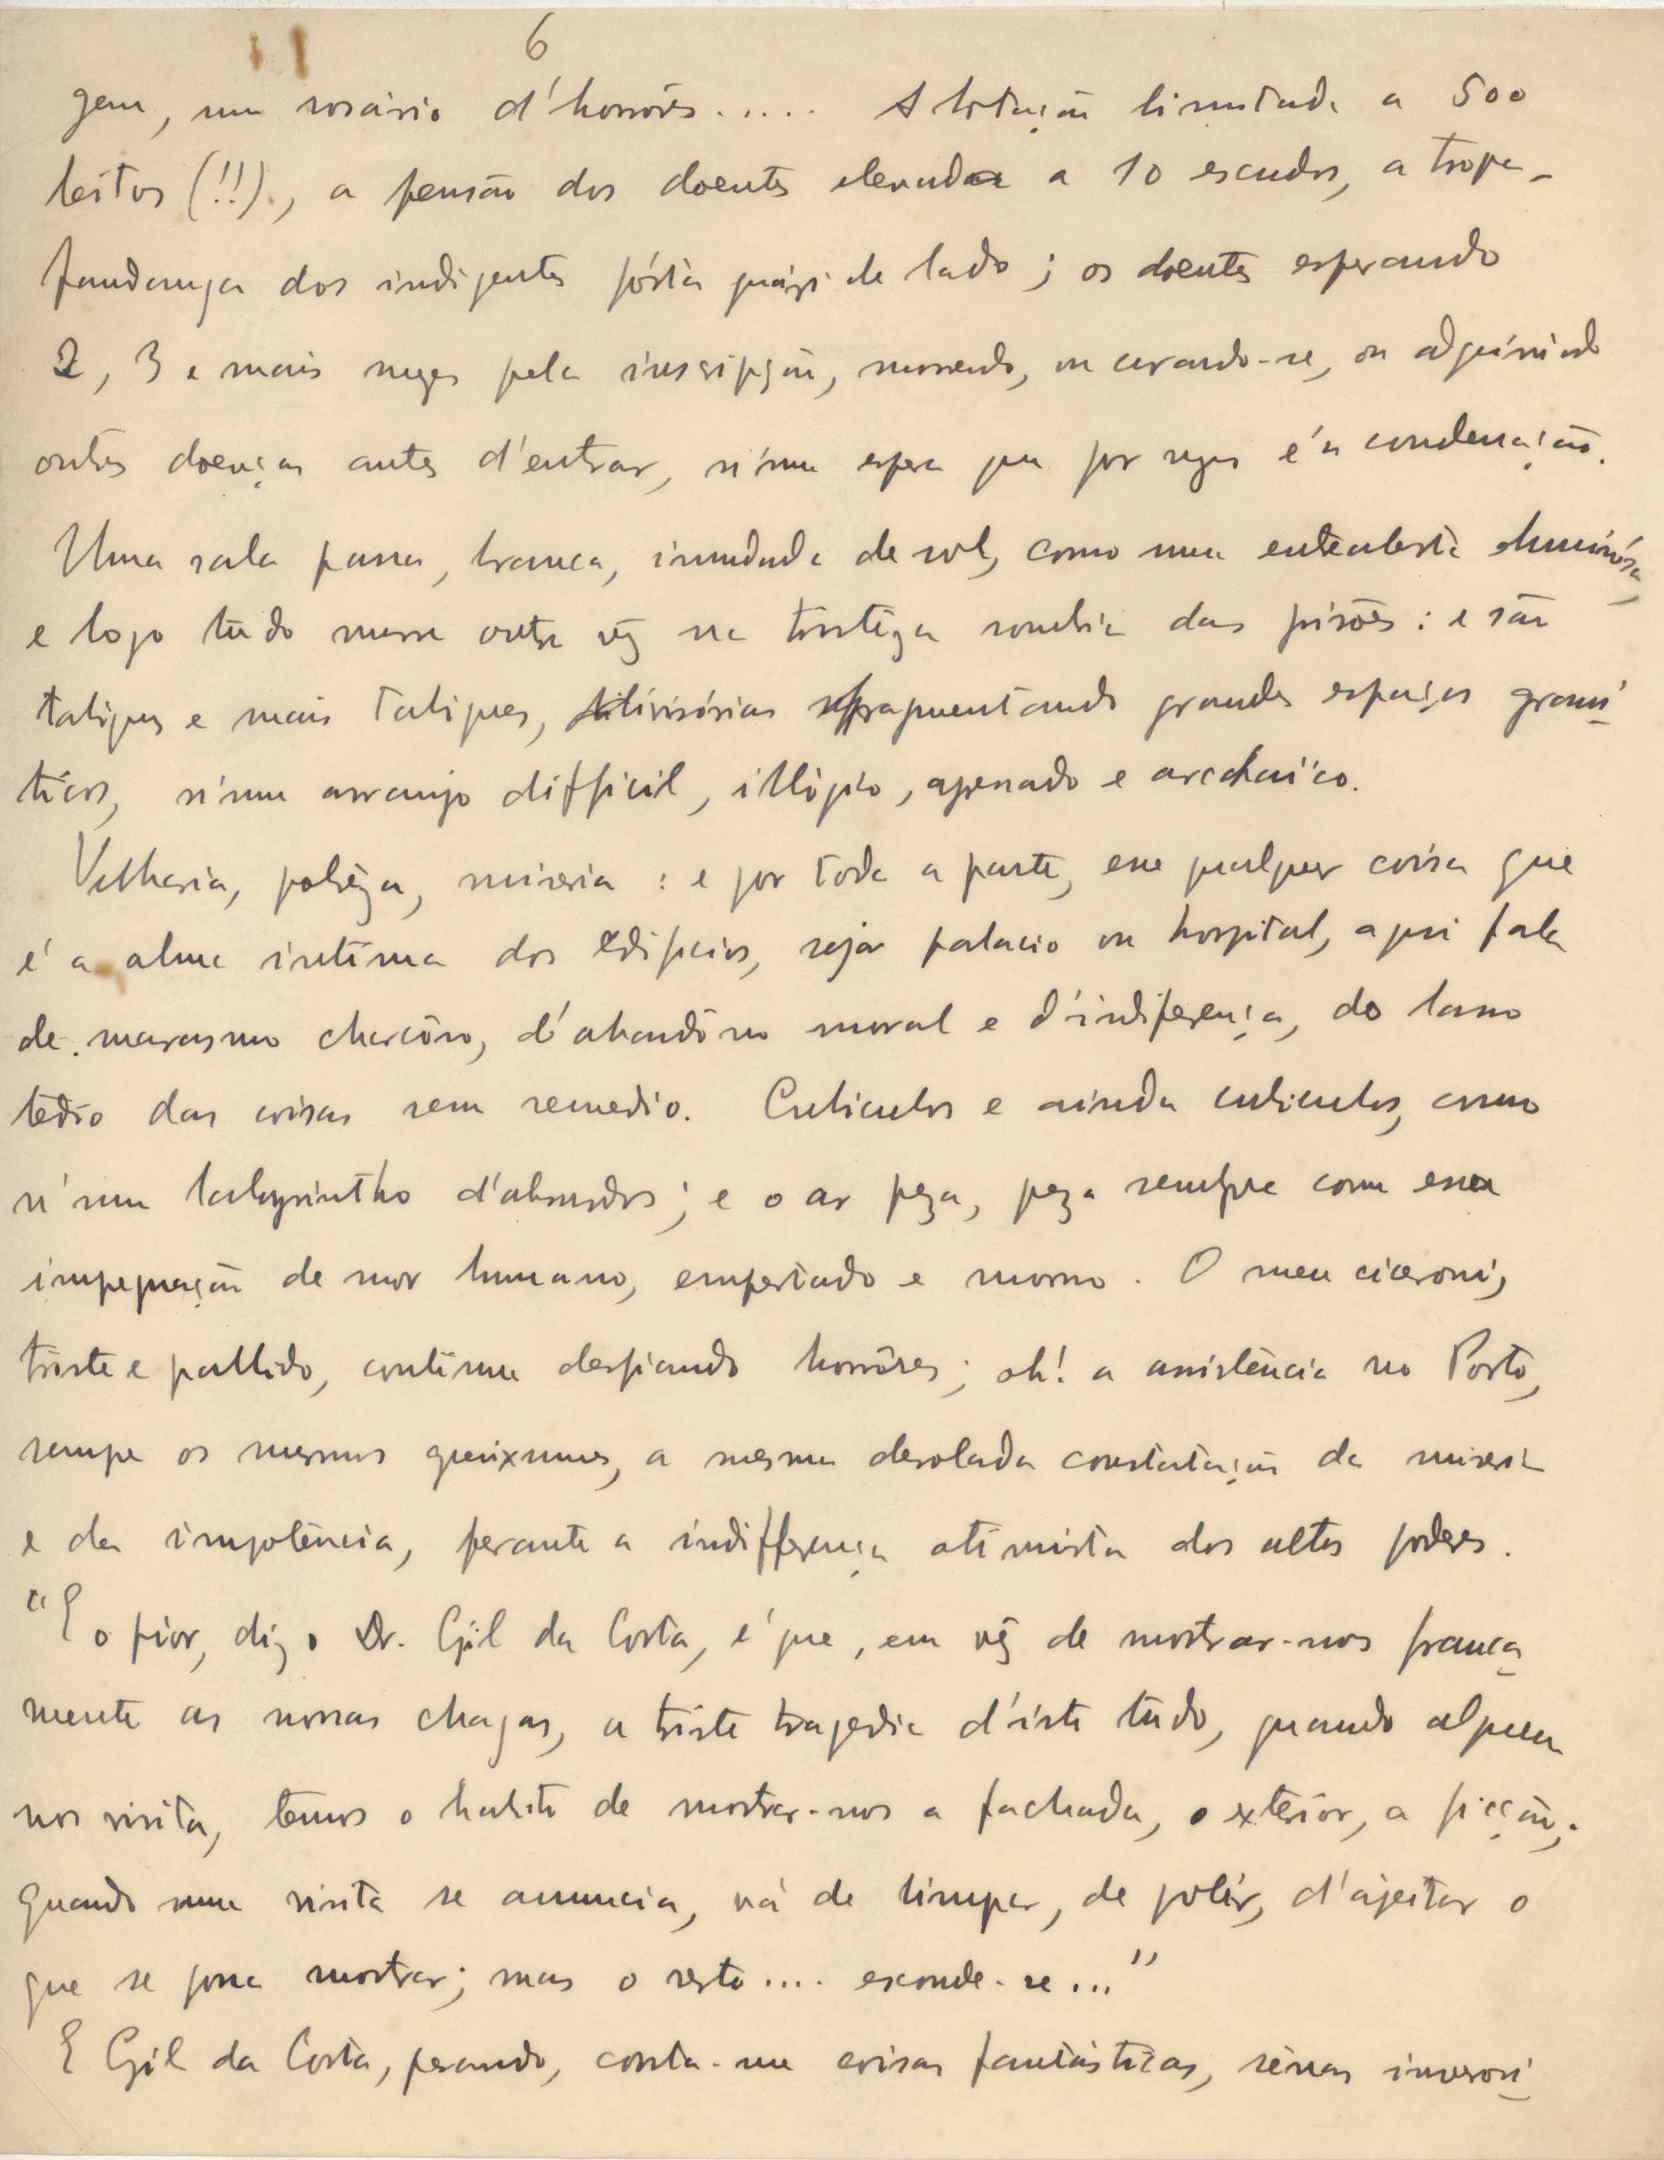 6
gem, um rosário d'horrores..... A lotação limitada a 500
leitos (!!)., a pensão dos doentes elevada a 10 escudos, a trope-
fandanga dos indigentes pósta quázi de lado; os doentes esperando
2, 3 e mais mezes pela inscripção, morrendo, ou curando-se, ou adquirindo
outras doenças antes d'entrar, n'uma espera que por vezes é a condenação.
Uma sala passa, branca, inundada de sol, como uma entreaberta luminósa,
e logo tudo outra vêz na tristêza sombria das prisões: e são
tabiques e mais tabiques, divisórias fragmentando grandes espaços grani-
ticos, n'um arranjo difficil, illógico, apenado e archaico.
Velharia, pobrêza, miseria: e por toda a parte, essa qualquer coisa que
é a alma intima dos edificios, seja palacio ou hospital, aqui fala
de marasmo, d'abandôno moral e d'indiferença, do lasso
tedio das coisas sem remedio. Cubiculos e ainda cubiculos, como
n'um labyrintho d'absurdos; e o ar peza, peza sempre com essa
impregnação de suor humano, empestado e morno. O meu ciceroni,
triste e pallido, continua desfiando horrôres; oh! a assistência no Porto,
sempre os mesmos queixumes, a mesma desolada constatação da miseria
e da impotência, perante a indifferença otimista dos altos poderes.
"E o pior, diz o Dr. Gil da Costa, é que, em vêz de mostrar-nos franca-
mente as nossas chagas, a triste tragedia d'isto tudo, quando alguem
nos visita, temos o habito de mostrar-nos a fachada, o exterior, a ficção;
quando uma visita se anuncia, vá de limpar, de polir, d'ajeitar o
que se possa mostrar; mas o resto.... esconde-se..."
E Gil da Costa, pesando, conta-me coisas fantásticas, sênas inverosi-